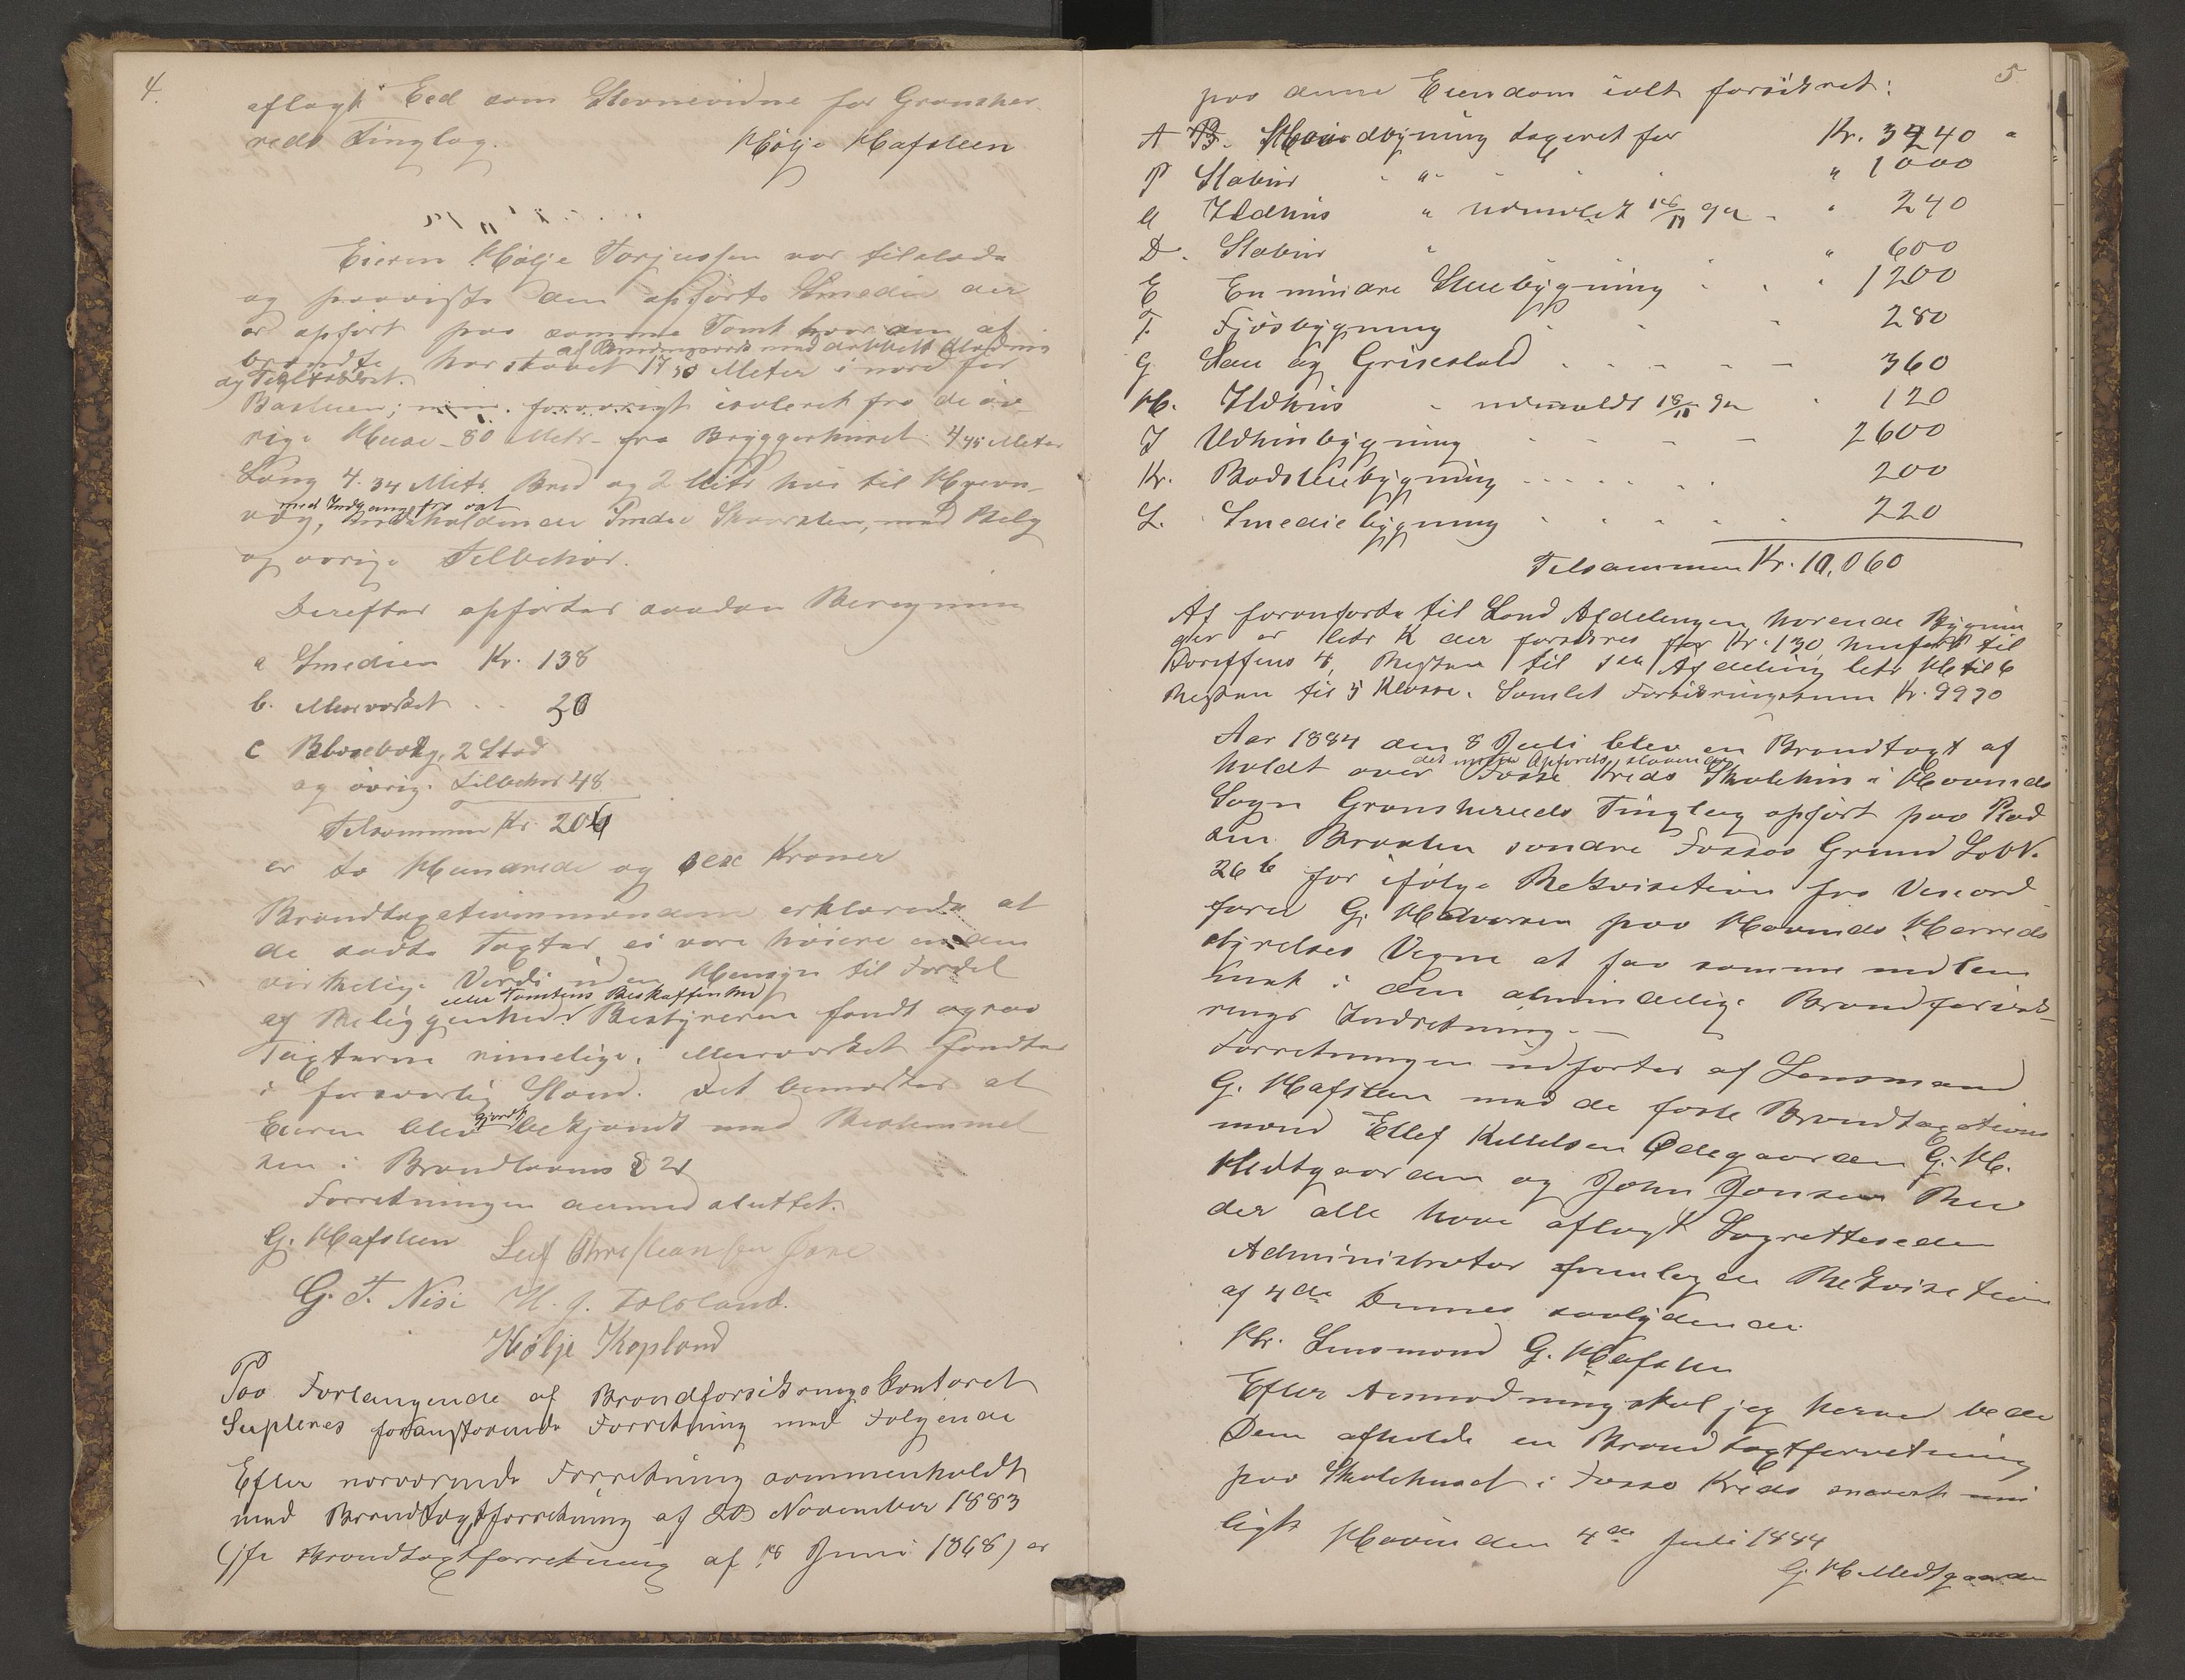 4.
aflagt Eed som Stevnevidne for Gransher
reds Tinglag.
Hølje Hafsteen
Eieren Hølje Torjussen var tilstede
og paaviste den opførte Smedie der
er opført paa samme Tomt hvor den af
brændte har staaet 17 50 Meter i nord for
og Teglstenet.
Bastuen; forøvrigt isoleret fra de øv-
rige Huse 80 Metr fra Bryggerhuset 4 75 Meter
Lang 4.34 Metr. Bred og 2 Metr høi til Msron-
med Indgang fra øst
væg, indeholdende Smedie Skorsten, med Belg
og øvrige Tilbehør.
Derefter opførtes saadan Beregning
a Smedien Kr. 138
b. Murværket .. 20
c Blæsebælg, 2 Stød
og øvrig. Tilbehør 48
Tilsammen Kr. 206
er to Hundrede og sex Kroner
Brandtaxationsmændene erklærede at
de satte Taxter ei vare høiere end den
virkelige Værdi uden Hensyn til Fordel
eller Tomtens Beskaffenhed
af Beliggenhed. Bestyreren fandt ogsaa
Taxterne rimelige. Murværket fandtes
i forsvarlig Stand. Det bemærkes at
gjordt
Eieren blev bekjendt med Bestemmel
sen i Brandlovens § 21
Forretningen dermed sluttet.
G. Hafsteen Leif Christiansen
G. T. Nisi H. J. Tolsland.
Hølje Kopland
Paa Forlangende af Brandforsikringskontoret
Supleres foranstaaende Forretning med Følgende
Efter nærværende Forretning sammenholdt
med Brandtaxtforretning af 20 November 1883
(jfr Brandtaxtforretning af 18 Juni 1868) er
5
paa denne Eiendom ialt forsikret:
A Hovedbygning taxeret for Kr. 3240
P Stabur " " 1000
Ildhus " udmeldt 18/11 92 " 240
D. Stabur " " 600
E En mindre Stuebygning " 1200
F. Fjøsbygning 280
G Sau og Grisestald 360
H. Ildhus - udmeldt 18/11 92 120
I Udhusbygning 2600
K. Badstuebygning 200
L. Smediebygning 220
Tilsammen Kr. 10,060
Af foranførte til Land Afdelingen hørende Bygnin
ger er litr K der forsikres for Kr. 130 henført til
Tariffens 4, Resten til 1ste Afdeling litr H til 6
Resten til 5 Klasse. Samlet Forsikringssum Kr. 9990
Aar 1884 den 8 Juli blev en Brandtaxt af
holdt over Fosse Kreds Skolehus i Hovinds
Sogn Gransherreds Tinglag opført paa Plad
sen Braaten søndre Fossos Grund LøbN.
26 b for ifølge Rekvisition fra Viseord
fører G. Halvorsen paa Hovinds Herreds
styrelses Vegne at faa samme indlem
met i den almindelige Brandforsik-
rings Indretning. —
Forretningen udførtes af Lensmand
G. Hafsteen med de faste Brandtaxations
mænd Ellef Kittelsen Ødegaarden G. H.
Midtgaarden og John Jonsen Bu
der alle have aflagt Lagretteseden
Administrator fremlagde Rekvisition
af 4de Dennes saalydende
Hr. Lensmand G. Hafsten
Efter Anmodning skal jeg herved bede
Dem afholde en Brandtaxtforretning
paa Skolehuset i Fosso Kreds snarest mu
ligt Hovin den 4de Juli 1884
G. H. Midtgaarden